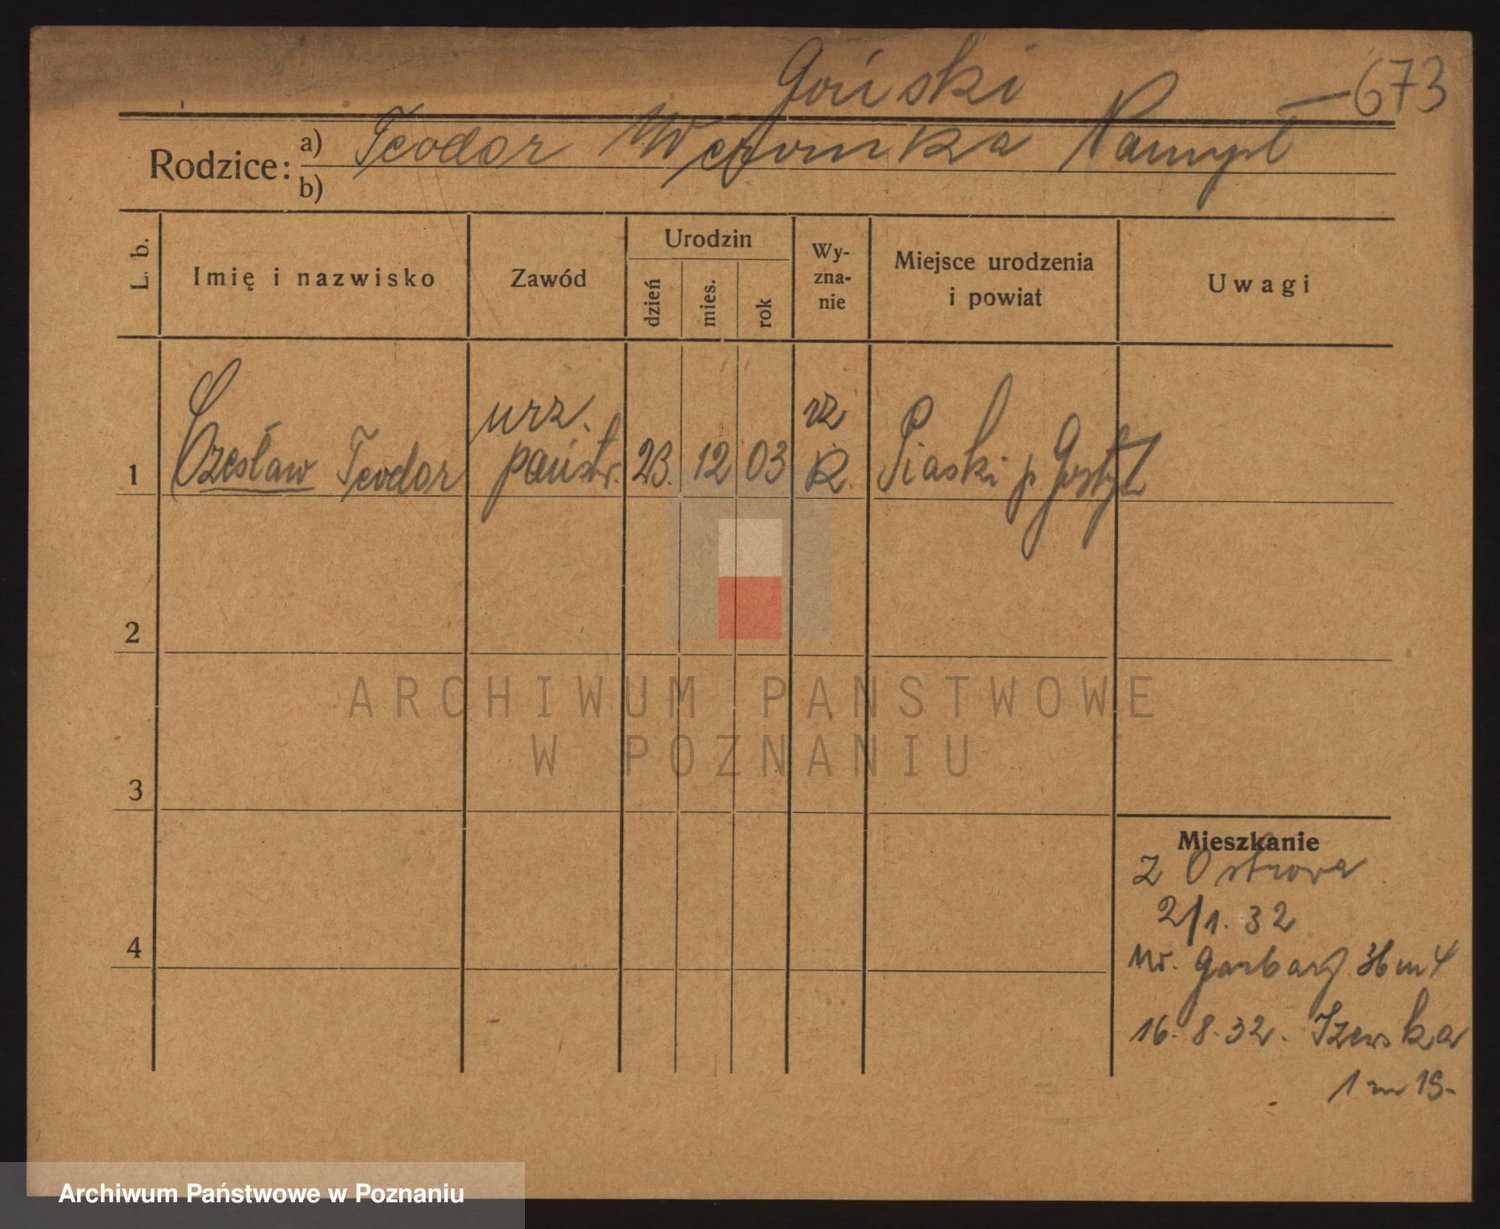 Goński — 673
Rodzice: a) Teodor Weronika Namysł
b)
L. b.
Imię i nazwisko
Zawód
Urodzin
dzień
mies.
rok
Wy-
zna-
nie
Miejsce urodzenia
i powiat
Uwagi
1 Czesław Teodor
urz.
państw.
23. 12 03
rz
K.
Piaski p. Gostyń
2
3
4
Mieszkanie
z Ostrowa
2/1. 32
Garbary 36 m 4
16. 8. 32.
1 m 15-
ARCHIWUM PANSTWOWE
W POZNANIU
Archiwum Państwowe w Poznaniu